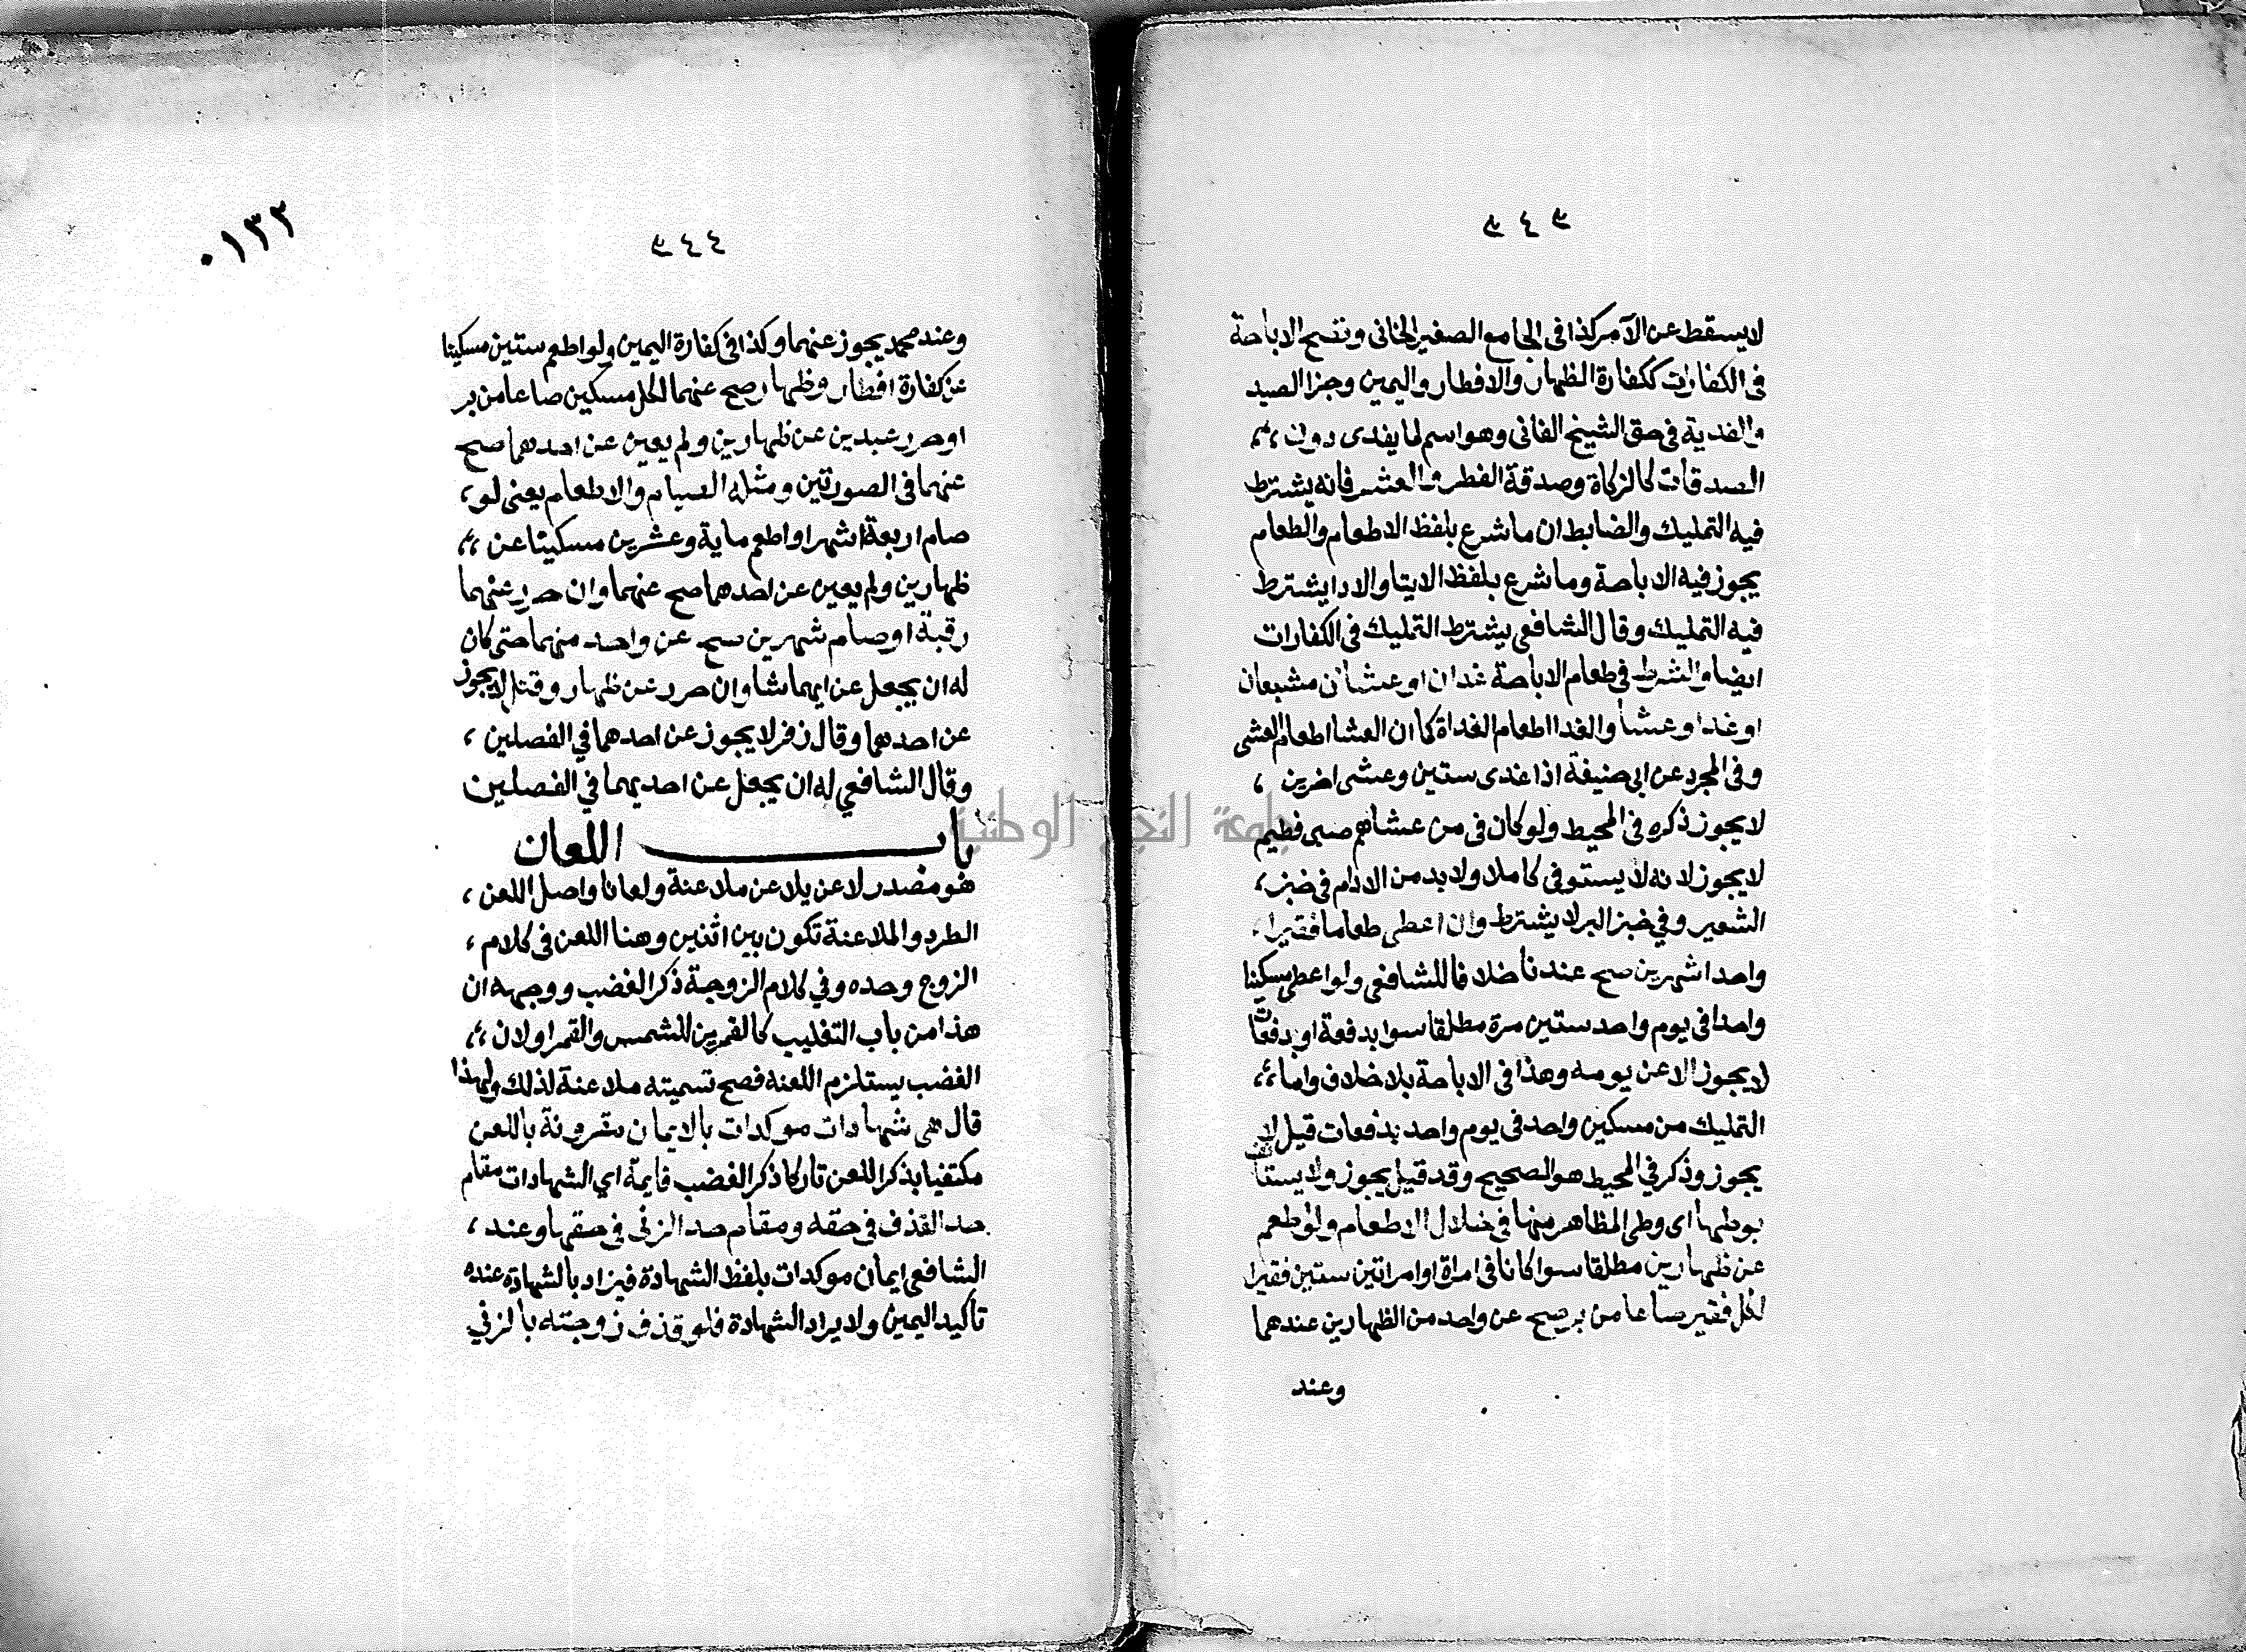 ٣٤٣
لا يسقط عن الآمر كذا في الجامع الصغير الخاني وتصح الاباحة
في الكفارات ككفارة الظهار والافطار واليمين وجزا الصيد
والفدية في حق الشيخ الفاني وهو اسم لما يفدى دون ،،
الصدقات كالزكاة وصدقة الفطر والعشر فانه يشترط
فيه التمليك والضابط ان ما شرع بلفظ الاطعام والطعام
يجوز فيه الاباحة وما شرع بلفظ الايتا والادا يشترط
فيه التمليك وقال الشافعي يشترط التمليك في الكفارات
ايضا والشرط في طعام الاباحة غدان او عشان مشبعان
او غدا وعشا والغدا اطعام الغداة كما ان العشا اطعام العشى
وفي المجرد عن ابي حنيفة اذا غدى ستين وعشى اخرين ،
لا يجوز ذكره في المحيط ولو كان في من عشاهم صبي فطيم
لا يجوز لانه لا يستوفي كاملا ولا بد من الادام في خبز ،
الشعير وفي خبز البر لا يشترط وان اعطى طعاما فقيرا
واحدا شهرين صح عندنا خلافا للشافعي ولو اعطى مسكينا
واحدا في يوم واحد ستين مرة مطلقا سوا بدفعة او بدفعات
لا يجوز الا عن يومه وهذا في الاباحة بلا خلاف واما ،،
التمليك من مسكين واحد في يوم واحد بدفعات قيل لا
يجوز وذكر في المحيط هو الصحيح وقد قيل يجوز ولا يستانف
بوطيها اي وطي المظاهر منها في خلال الاطعام ولو اطعم
عن ظهارين مطلقا سوا كانا في امراة او امراتين ستين فقيرا
لكل فقير صاعا من بر صح عن واحد من الظهارين عندهما
وعند
٠١٣٢
٣٤٤
وعند محمد يجوز عنهما وكذا في كفارة اليمين ولو اطعم ستين مسكينا
عن كفارة افطار وظهار صح عنهما لكل مسكين صاعا من بر
او حرر عبدين عن ظهارين ولم يعين عن احدهما صح
عنهما في الصورتين ومثله الصيام والاطعام يعنى لو ،
صام اربعة اشهر او اطعم ماية وعشرين مسكينا عن ،،
ظهارين ولم يعين عن احدهما صح عنهما وان حرر عنهما
رقبة او صام شهرين صح عن واحد منهما حتى كان
له ان يجعل عن ايهما شا وان حرر عن ظهار وقتل لا يجوز
عن احدهما وقال زفر لا يجوز عن احدهما في الفصلين ،
وقال الشافعي له ان يجعل عن احديهما في الفصلين
باب اللعان
هو مصدر لاعن يلاعن ملاعنة ولعانا واصل اللعن ،
الطرد والملاعنة تكون بين اثنين وهنا اللعن في كلام ،
الزوج وحده وفي كلام الزوجة ذكر الغضب ووجهه ان
هذا من باب التغليب كالقمرين للشمس والقمر اولان ،،
الغضب يستلزم اللعنه فصح تسميته ملاعنة لذلك ولهذا
قال هي شهادات موكدات بالايمان مقرونة باللعن
مكتفيا بذكر اللعن تاركا ذكر الغضب قايمة اي الشهادات مقام
حد القذف في حقه ومقام حد الزنى في حقها وعند ،
الشافعي ايمان موكدات بلفظ الشهادة فيزاد بالشهادة عنده
تاكيد اليمين ولا يراد الشهادة فلو قذف زوجته بالزني
جامعة النجاح الوطنية